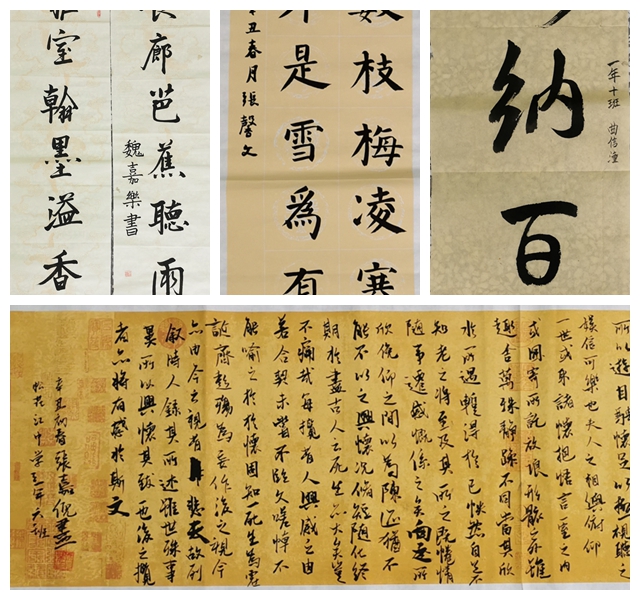 廊芭蕉聽雨
魏嘉樂書
室翰墨溢香
數枝梅凌寒
不是雪為有
辛丑春月張馨文
一年十班
納百
所以遊目騁懷足以極視聽之
娛信可樂也夫人之相與俯仰
一世或取諸懷抱悟言一室之內
或因寄所託放浪形骸之外雖
趣舍萬殊靜躁不同當其欣
於所遇蹔得於己怏然自足不
知老之將至及其所之既惓情
隨事遷感慨係之矣向之所
欣俛仰之間以為陳迹猶不
能不以之興懷況脩短隨化終
期於盡古人云死生亦大矣豈
不痛哉每攬昔人興感之由
若合一契未嘗不臨文嗟悼不
能喻之於懷固知一死生為虛
誕齊彭殤為妄作後之視今
亦由今之視昔悲夫故列
敘時人錄其所述雖世殊事
異所以興懷其致一也後之攬
者亦將有感於斯文
辛丑初春張嘉倪書
松花江中學